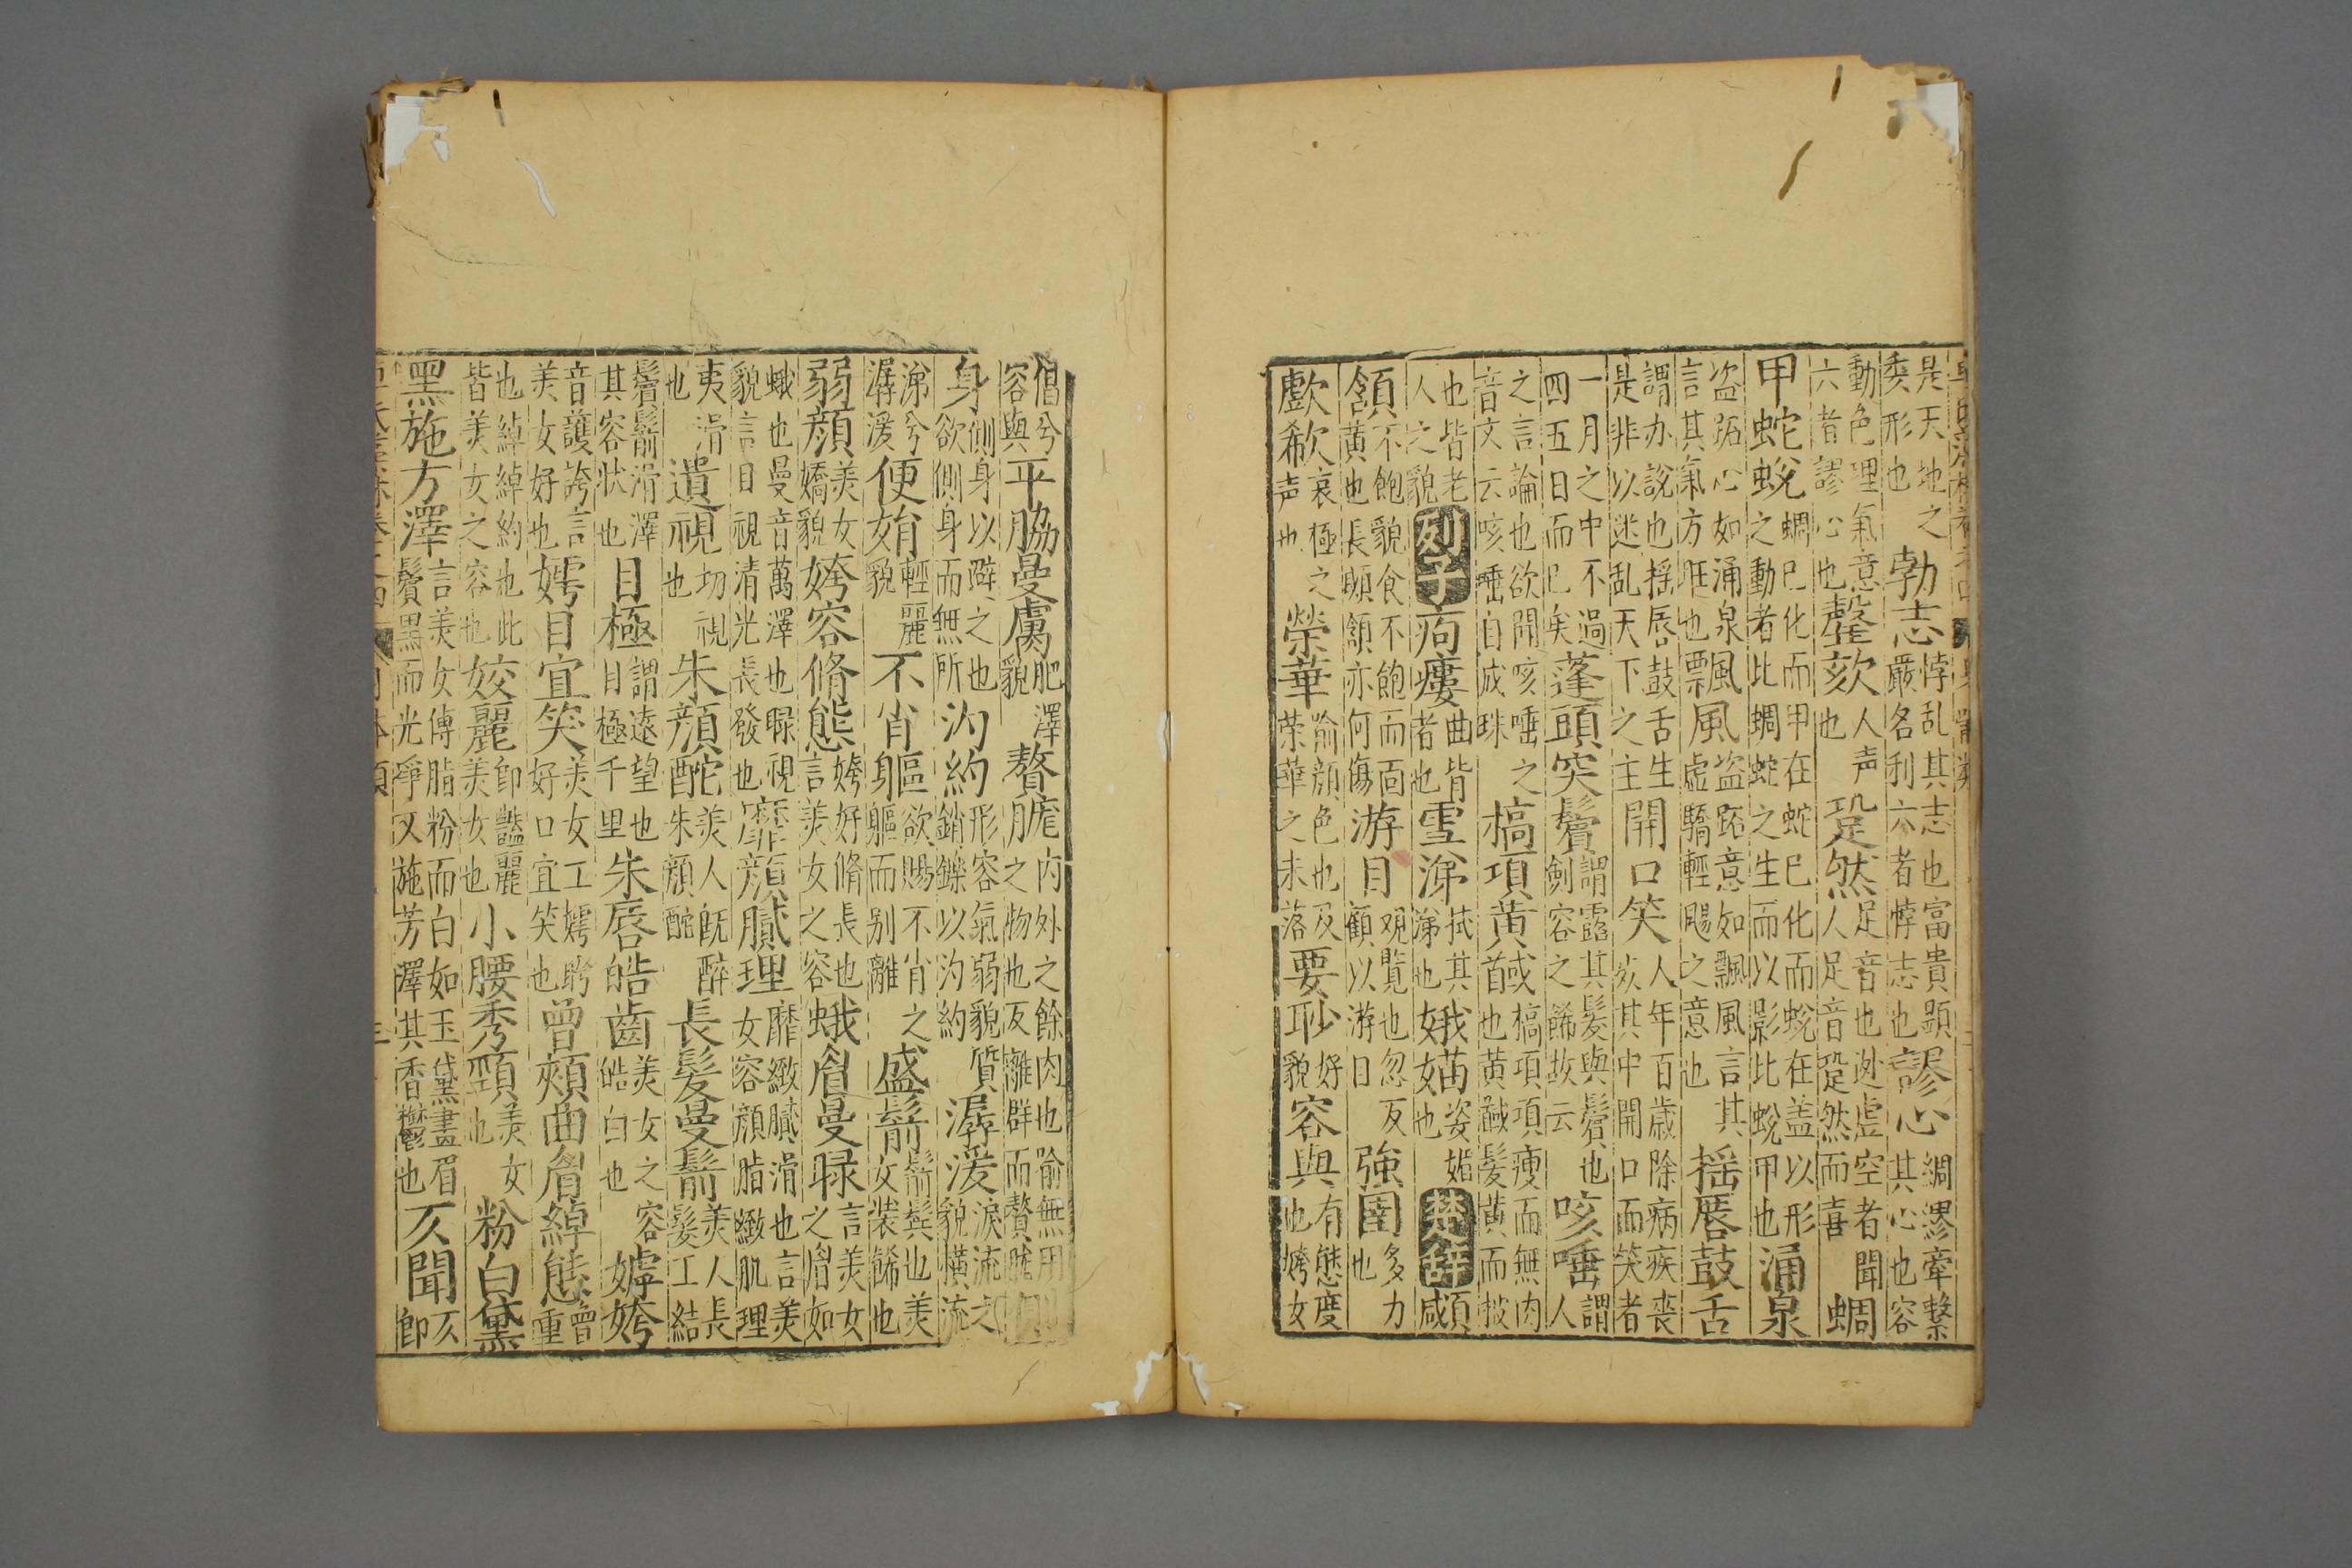 是天地之委形也勃志悖乱其志也富貴顕嚴名利六者悖志也謬心綢繆牽繫其心也容
動色理氣意六者謬心也謦欬人声也跫然足音也逃虚空者聞人足音跫然而喜蜩
甲蛇蛻蜩已化而甲在蛇已化而蛻在盖以形之動者比蜩蛇之生而以影比蛻甲也涌泉
盗跖心如涌泉言其氣方旺也飄風盗跖意如飄風言其虚驕輕颺之意也揺唇鼓舌
謂办説也揺唇鼓舌生是非以迷乱天下之主開口笑人年百歳除病疾喪其中開口而笑者
一月之中不過四五日而已矣蓬頭突鬢謂露其髪與鬢也劍容之餙故云咳唾謂人
之言論也欲開咳唾之音文云咳唾自成珠槁項黄馘槁項項瘦而無肉也黄馘髪黄而
也皆老人之貌列子痀瘻曲背者也雪涕拭其涕也娥媌姿媚女也楚辭顑
頷不飽貌食不飽而面黄也長顑頷亦何傷游目观覧也忽反顧以游目強圉多力也
歔欷哀極之声也榮華喻顔色也及荣華之未落要眇好貌容與有態度也姱女
倡兮容與平脇曼膚肥澤貌贅肬内外之餘肉也喻無用之物也反離群而贅肬側
身側身以避之也欲側身而無所汋約形容氣弱貌銷鑠以汋約質潺湲淚流之貌横流
涕兮潺湲便姢輕麗貌不肖軀欲賜不肖之軀而别離盛鬋鬋鬂也美女装餙也
弱顔美女嬌貌姱容脩態姱好脩長也言美女之容蛾眉曼睩言美女之眉如
蛾也曼音萬澤也睩視貌言目視清光長發也靡顔膩理靡緻膩滑也言美女容容顔脂緻肌理
夷滑也遺視切視也朱顔酡美人既醉朱顔酡長髪曼鬋美人長髮工結
鬢鬋滑澤其容状也目極謂遠望也目極千里朱唇皓齒美女之容皓白也嫭姱
音護誇言美女好也嫮目宜笑美女工嫮眄好口宜笑也曾頰曲眉綽態曾重
也綽綽約也此皆美女之容也姣麗即豔麗美女也小腰秀頸美女也粉白黛
黑施方澤言美女傅脂粉而白如玉黛畫眉鬢黒而光淨又施芳澤其香欝也仄聞仄即